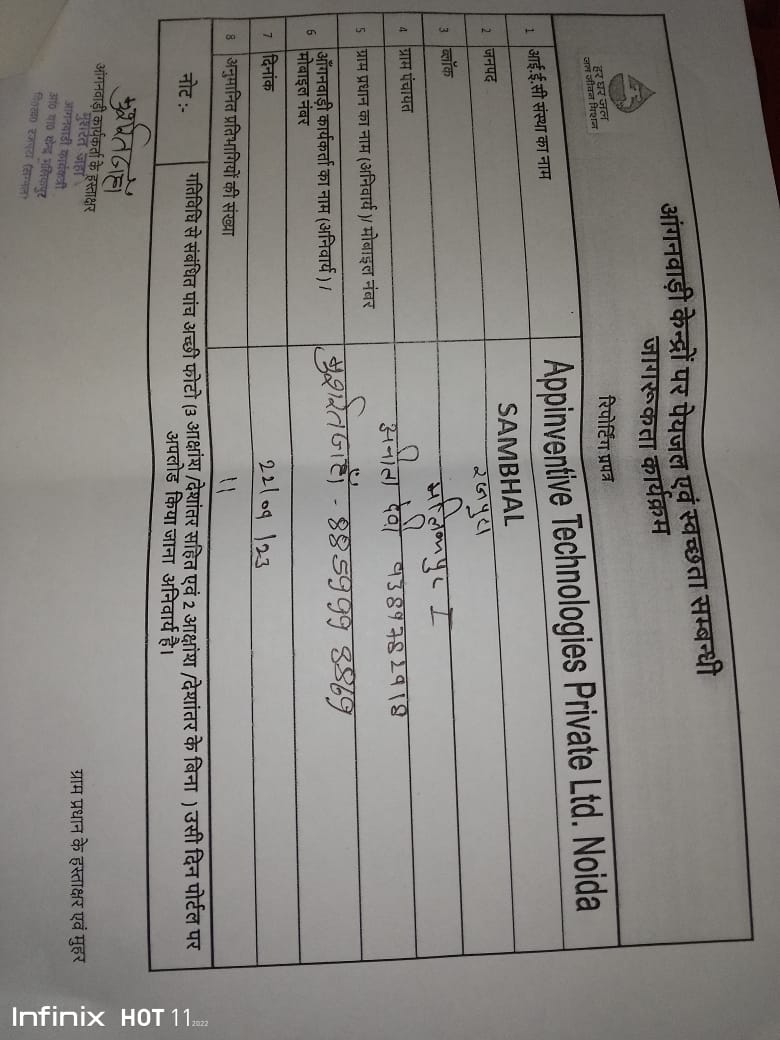 हर घर जल
जल जीवन मिशन
आंगनवाड़ी केन्द्रों पर पेयजल एवं स्वच्छता सम्बन्धी
जागरूकता कार्यक्रम
रिपोर्टिंग प्रपत्र
1 आई.ई.सी संस्था का नाम Appinventive Technologies Private Ltd. Noida
2 जनपद SAMBHAL
3 ब्लॉक रजपुरा
4 ग्राम पंचायत
5 ग्राम प्रधान का नाम (अनिवार्य)/ मोबाइल नंबर
6 आँगनवाड़ी कार्यकर्ता का नाम (अनिवार्य )/
मोबाइल नंबर
7 दिनांक 22/09/23
8 अनुमानित प्रतिभागियों की संख्या 11
नोट :- गतिविधि से संबंधित पांच अच्छी फोटो (3 आक्षांश /देशांतर सहित एवं 2 आक्षांश /देशांतर के बिना ) उसी दिन पोर्टल पर
अपलोड किया जाना अनिवार्य है।
आंगनवाड़ी कार्यकर्ता के हस्ताक्षर
ग्राम प्रधान के हस्ताक्षर एवं मुहर
Infinix HOT 11 2022